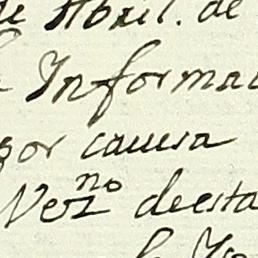 de Abril. de
Informac
por causa
Vez.no deesta